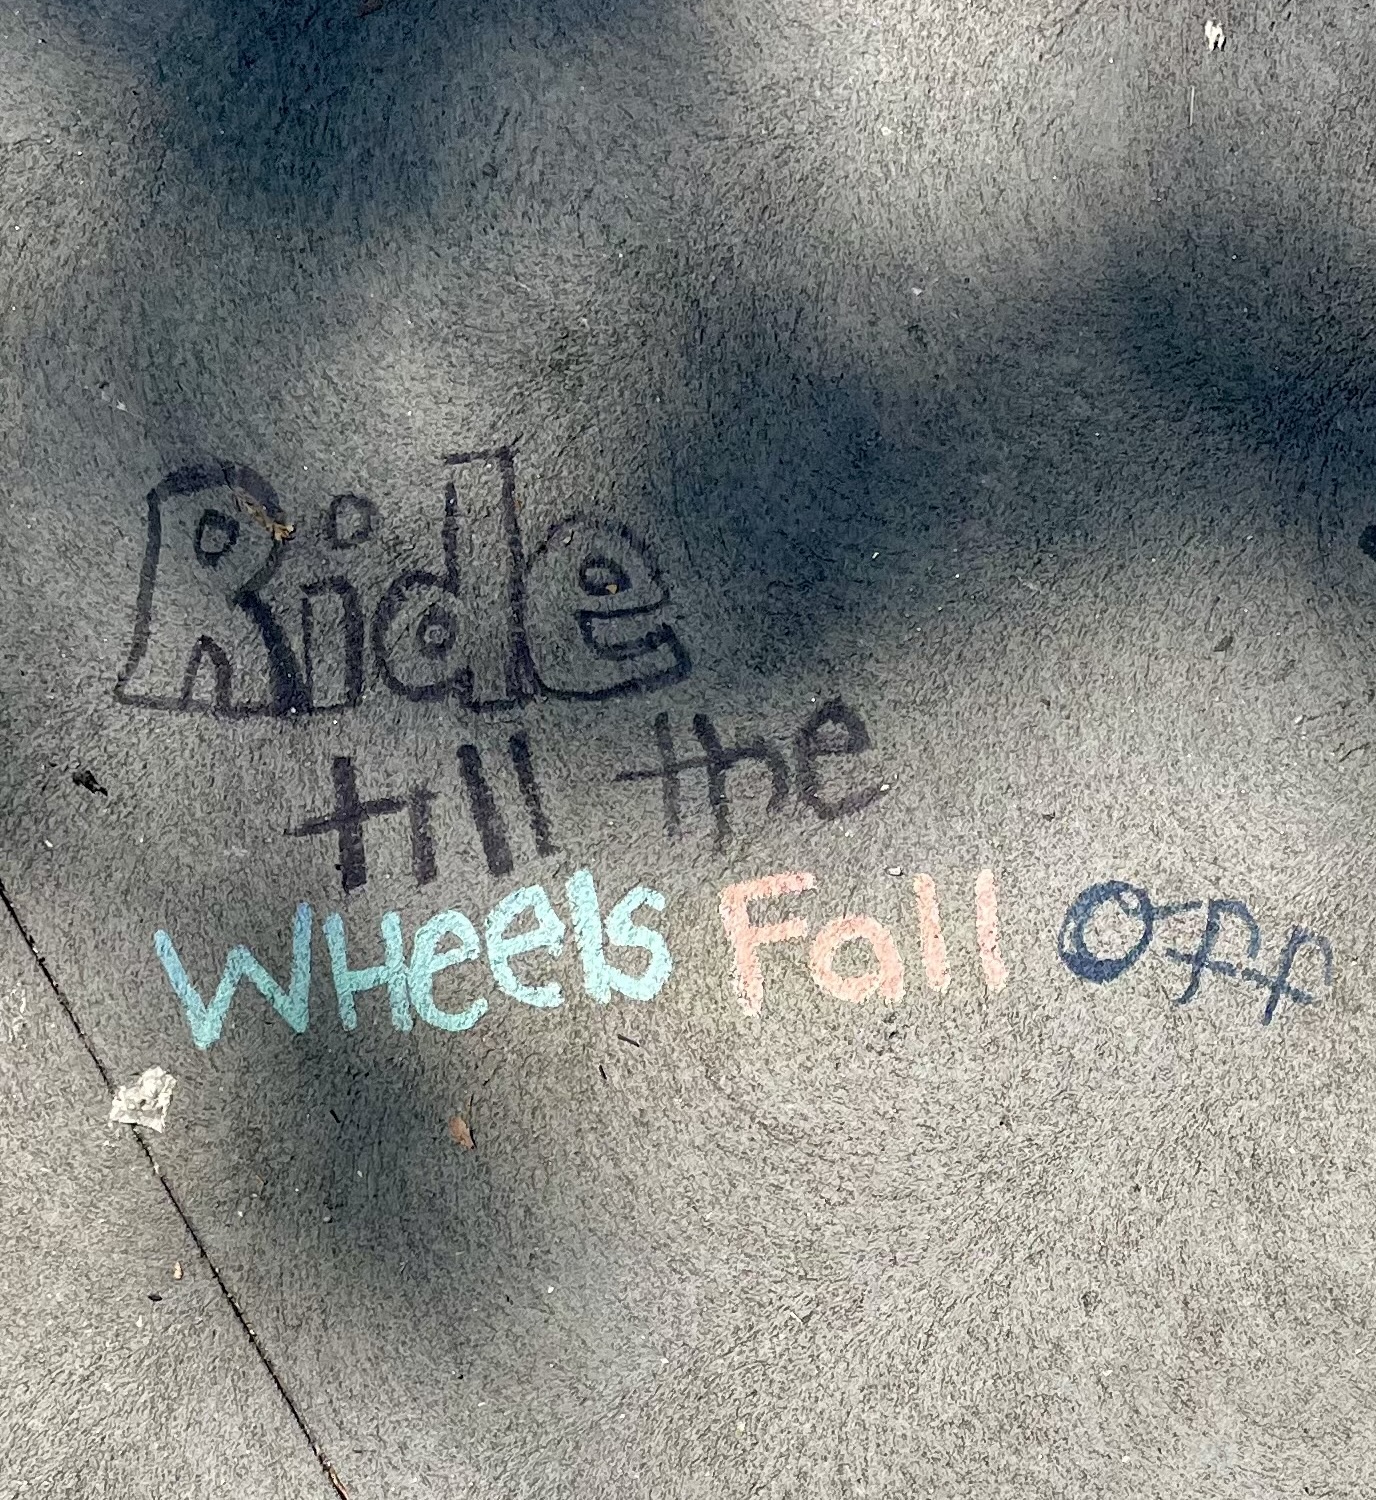 Ride
till the
WHeels Fall Off